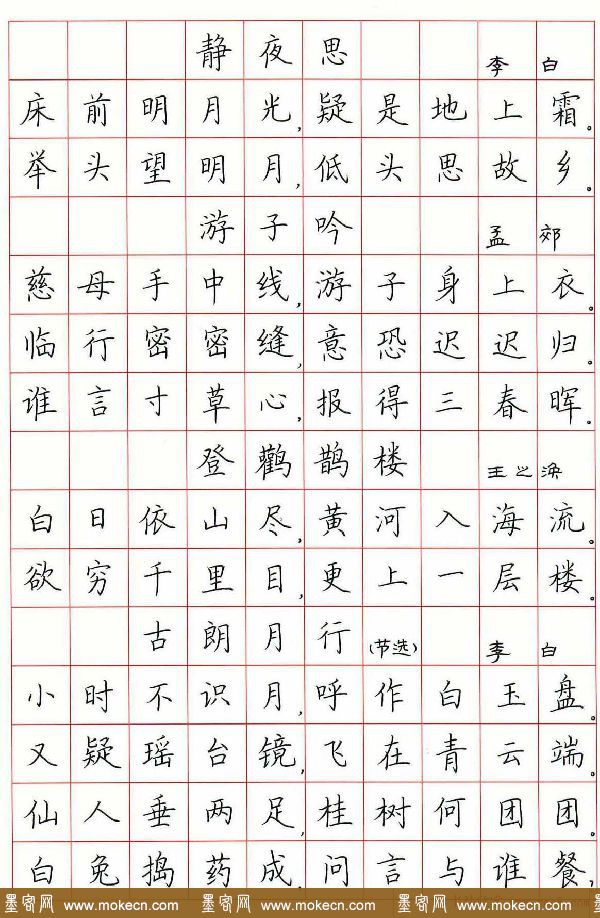 静夜思 李白
床前明月光,疑是地上霜。
举头望明月,低头思故乡。
游子吟 孟郊
慈母手中线,游子身上衣。
临行密密缝,意恐迟迟归。
谁言寸草心,报得三春晖。
登鹳鹊楼 王之涣
白日依山尽,黄河入海流。
欲穷千里目,更上一层楼。
古朗月行(节选) 李白
小时不识月,呼作白玉盘。
又疑瑶台镜,飞在青云端。
仙人垂两足,桂树何团团。
白兔捣药成,问言与谁餐,
墨客网 www.mokecn.com 墨客网 www.mokecn.com 墨客网 www.mokecn.com